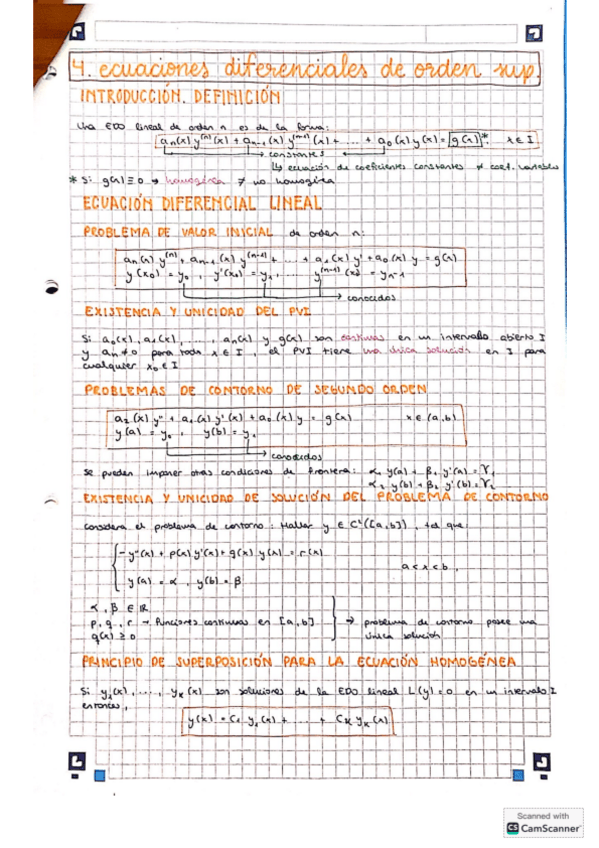 4. ecuaciones diferenciales de orden sup.
INTRODUCCIÓN. DEFINICIÓN
Una EDO lineal de orden n es de la forma:
aₙ(x) y⁽ⁿ⁾(x) + aₙ₋₁(x) y⁽ⁿ⁻¹⁾(x) + ... + a₀(x) y(x) = g(x)* x ∈ I
constantes
↳ ecuación de coeficientes constantes ≠ coef. variables
* Si g(x) ≡ 0 → homogénea ≠ no homogénea
ECUACIÓN DIFERENCIAL LINEAL
PROBLEMA DE VALOR INICIAL de orden n:
aₙ(x) y⁽ⁿ⁾ + aₙ₋₁(x) y⁽ⁿ⁻¹⁾ + ... + a₁(x) y' + a₀(x) y = g(x)
y(x₀) = y₀, y'(x₀) = y₁, ... y⁽ⁿ⁻¹⁾(x₀) = yₙ₋₁
→ conocidos
EXISTENCIA Y UNICIDAD DEL PVI
Si a₀(x), a₁(x), ..., aₙ(x) y g(x) son continuas en un intervalo abierto I
y aₙ ≠ 0 para todo x ∈ I, el PVI tiene una única solución en I para
cualquier x₀ ∈ I
PROBLEMAS DE CONTORNO DE SEGUNDO ORDEN
a₂(x) y'' + a₁(x) y'(x) + a₀(x) y = g(x) x ∈ (a,b)
y(a) = y₀, y(b) = y₁
→ conocidos
Se pueden imponer otras condiciones de frontera: α₁ y(a) + β₁ y'(a) = γ₁
α₂ y(b) + β₂ y'(b) = γ₂
EXISTENCIA Y UNICIDAD DE SOLUCIÓN DEL PROBLEMA DE CONTORNO
Considera el problema de contorno: Hallar y ∈ C²([a,b]), tal que:
-y''(x) + p(x) y'(x) + q(x) y(x) = r(x) a < x < b,
y(a) = α, y(b) = β
α, β ∈ ℝ
p, q, r → funciones continuas en [a,b] → problema de contorno posee una
q(x) ≥ 0 única solución
PRINCIPIO DE SUPERPOSICIÓN PARA LA ECUACIÓN HOMOGÉNEA
Si y₁(x), ..., yₖ(x) son soluciones de la EDO lineal L(y) = 0 en un intervalo I
entonces,
y(x) = C₁ y₁(x) + ... + Cₖ yₖ(x)
Scanned with
CS CamScanner